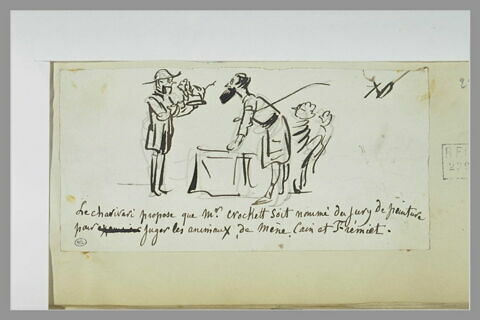 Le charivari propose que Mr. Crockett soit nommé du jury de peinture
pour juger les animaux de Mène, Cain et Frémiet.